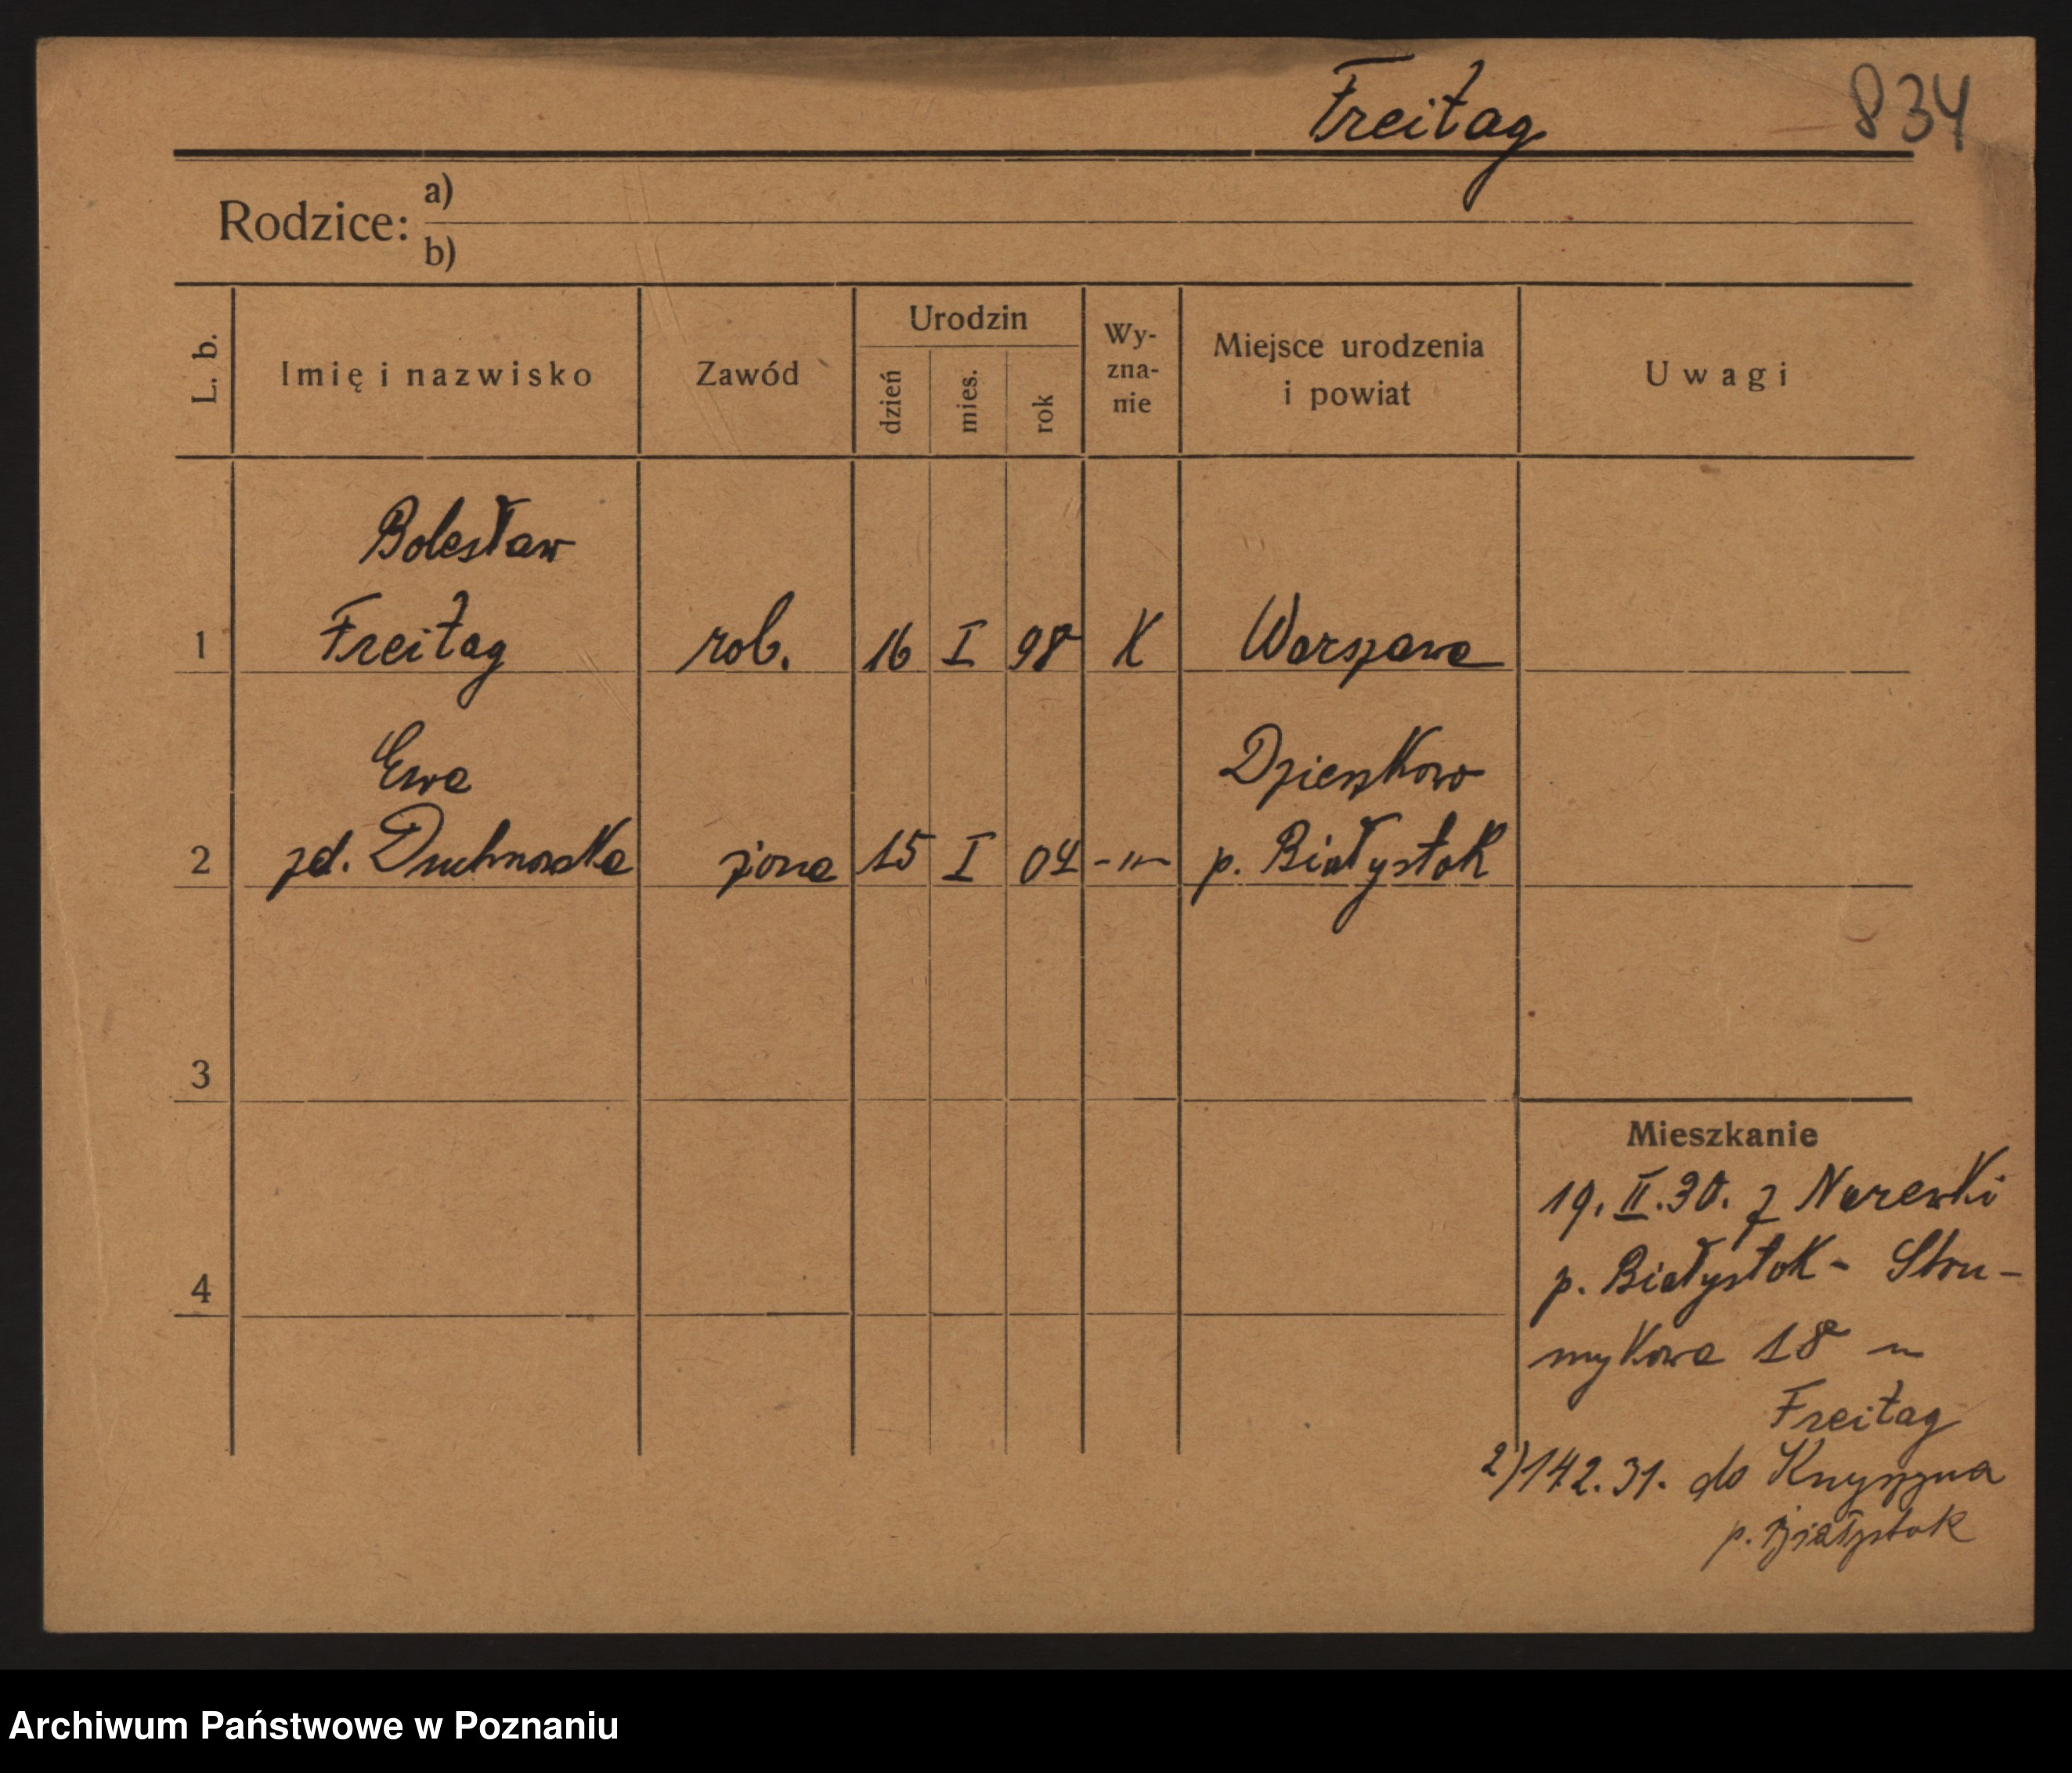 Freitag 834
Rodzice: a)
b)
L. b. Imię i nazwisko Zawód Urodzin dzień mies. rok Wy-
zna-
nie Miejsce urodzenia
i powiat Uwagi
Bolesław
1 Freitag rob. 16 I 98 K Warszawa
Ewa Dzieszkowo
2 zd. Duchnowska żona 15 I 04 -"- p. Białystok
3
4
Mieszkanie
19. II. 30. z Narewki
p. Białystok - Stru-
mykowa 18
Freitag
2) 14 2. 31. do Knyszyna
p. Białystok
Archiwum Państwowe w Poznaniu